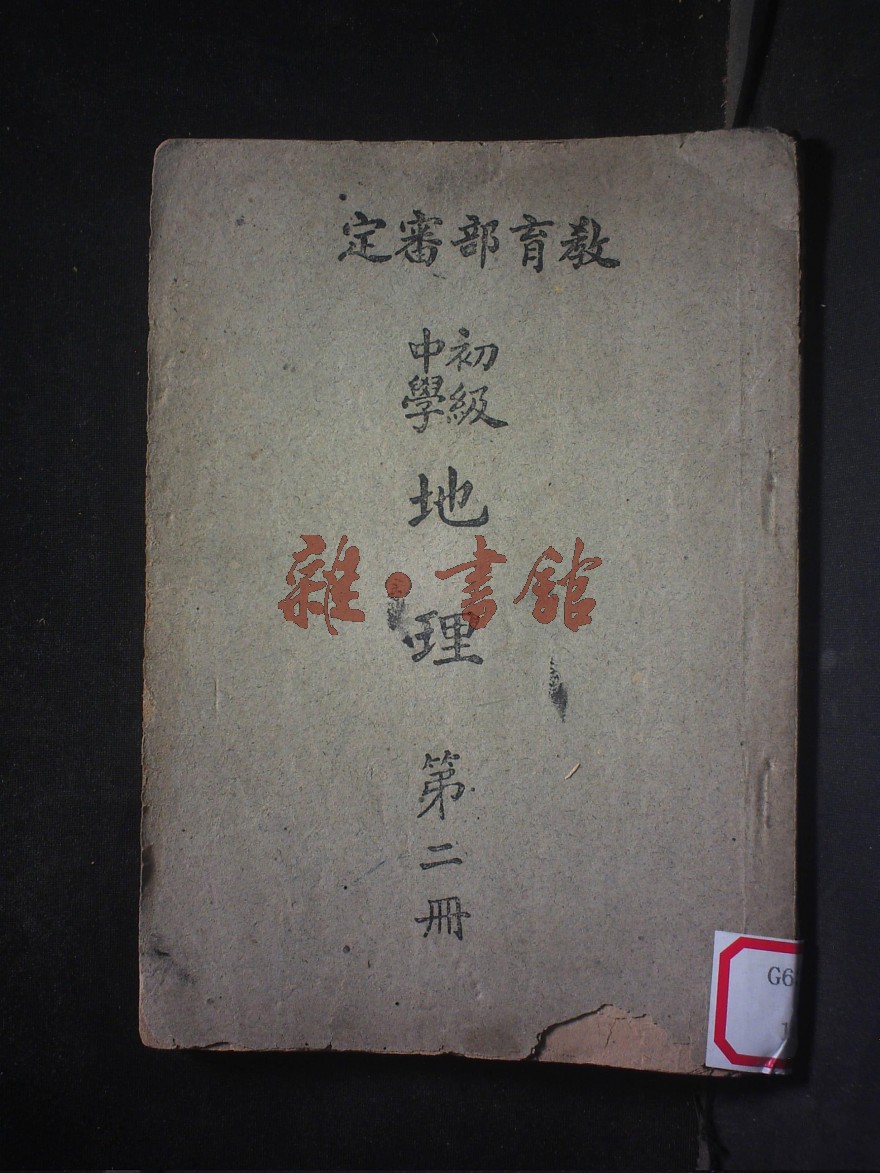 教育部審定
初級
中學
地理
第二冊
雜·書舘
G6
1